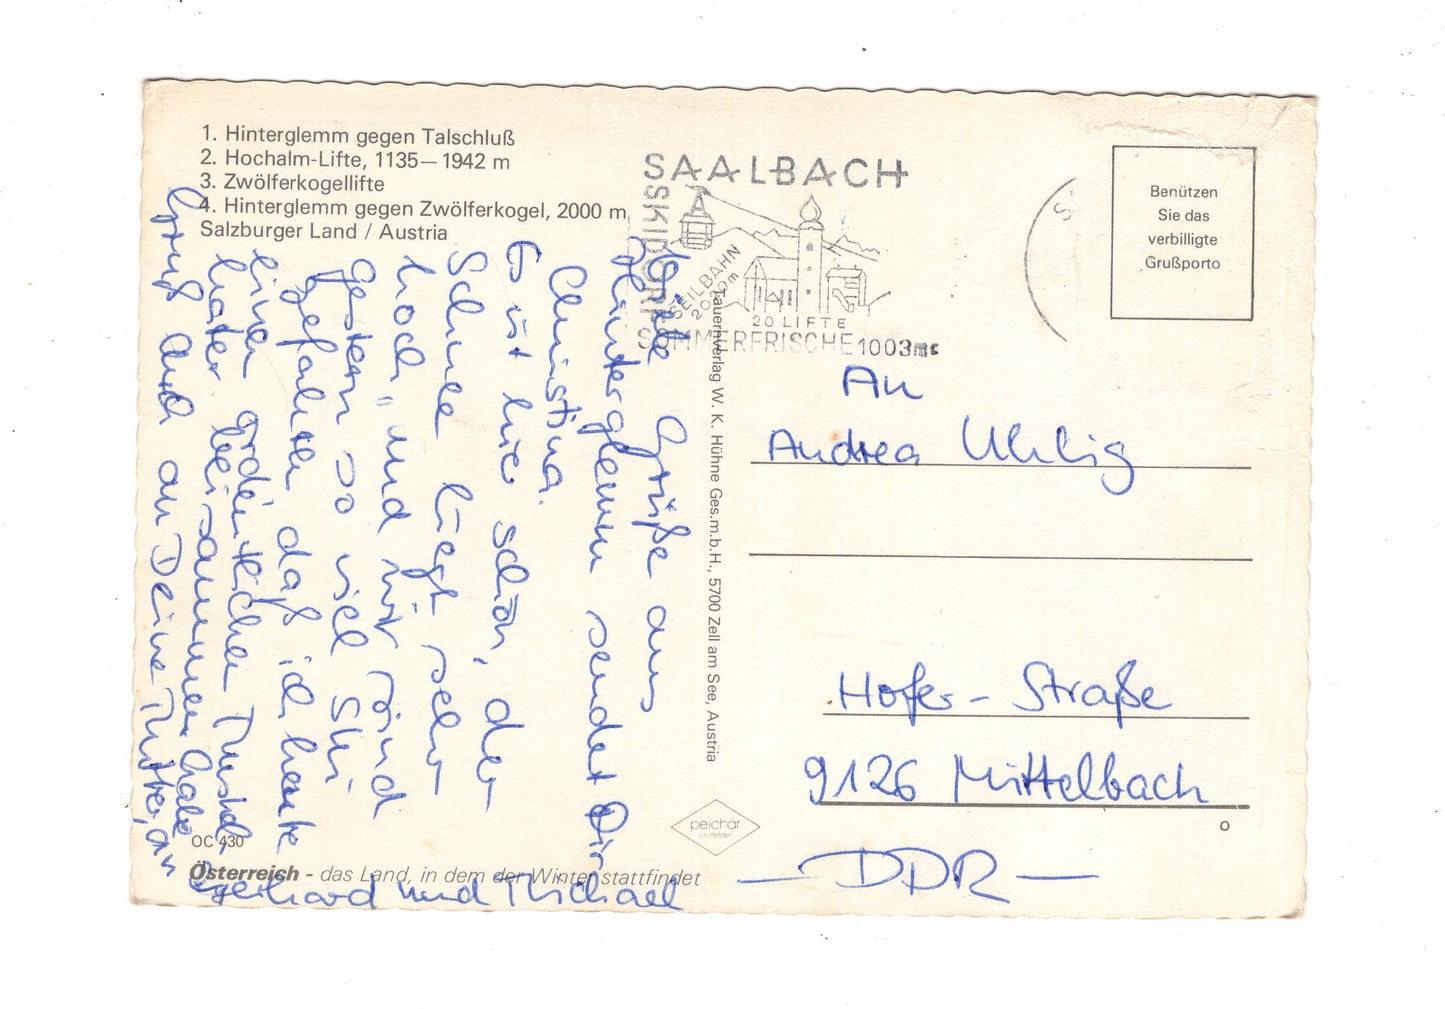 1. Hinterglemm gegen Talschluß
2. Hochalm-Lifte, 1135—1942 m
3. Zwölferkogellifte
4. Hinterglemm gegen Zwölferkogel, 2000 m
Salzburger Land / Austria
SAALBACH
SKIDORF
SEILBAHN
2020m
20 LIFTE
SOMMERFRISCHE 1003m
S
Benützen
Sie das
verbilligte
Grußporto
Viele Grüße aus
Hinterglemm sendet Dir
Christina.
Es ist hier schön, der
Schnee liegt sehr
hoch, und wir sind
gestern so viel Ski
gefahren daß ich heute
einen ordentlichen Muskel
kater beisammen habe
Gruß auch an Deine Mutter, an
Gerhard und Michael
Tauernverlag W. K. Hühne Ges.m.b.H., 5700 Zell am See, Austria
An
Andrea Uhlig
Hofer-Straße
9126 Mittelbach
— DDR —
peichär
saalfelden
OC 430
Österreich - das Land, in dem der Winter stattfindet